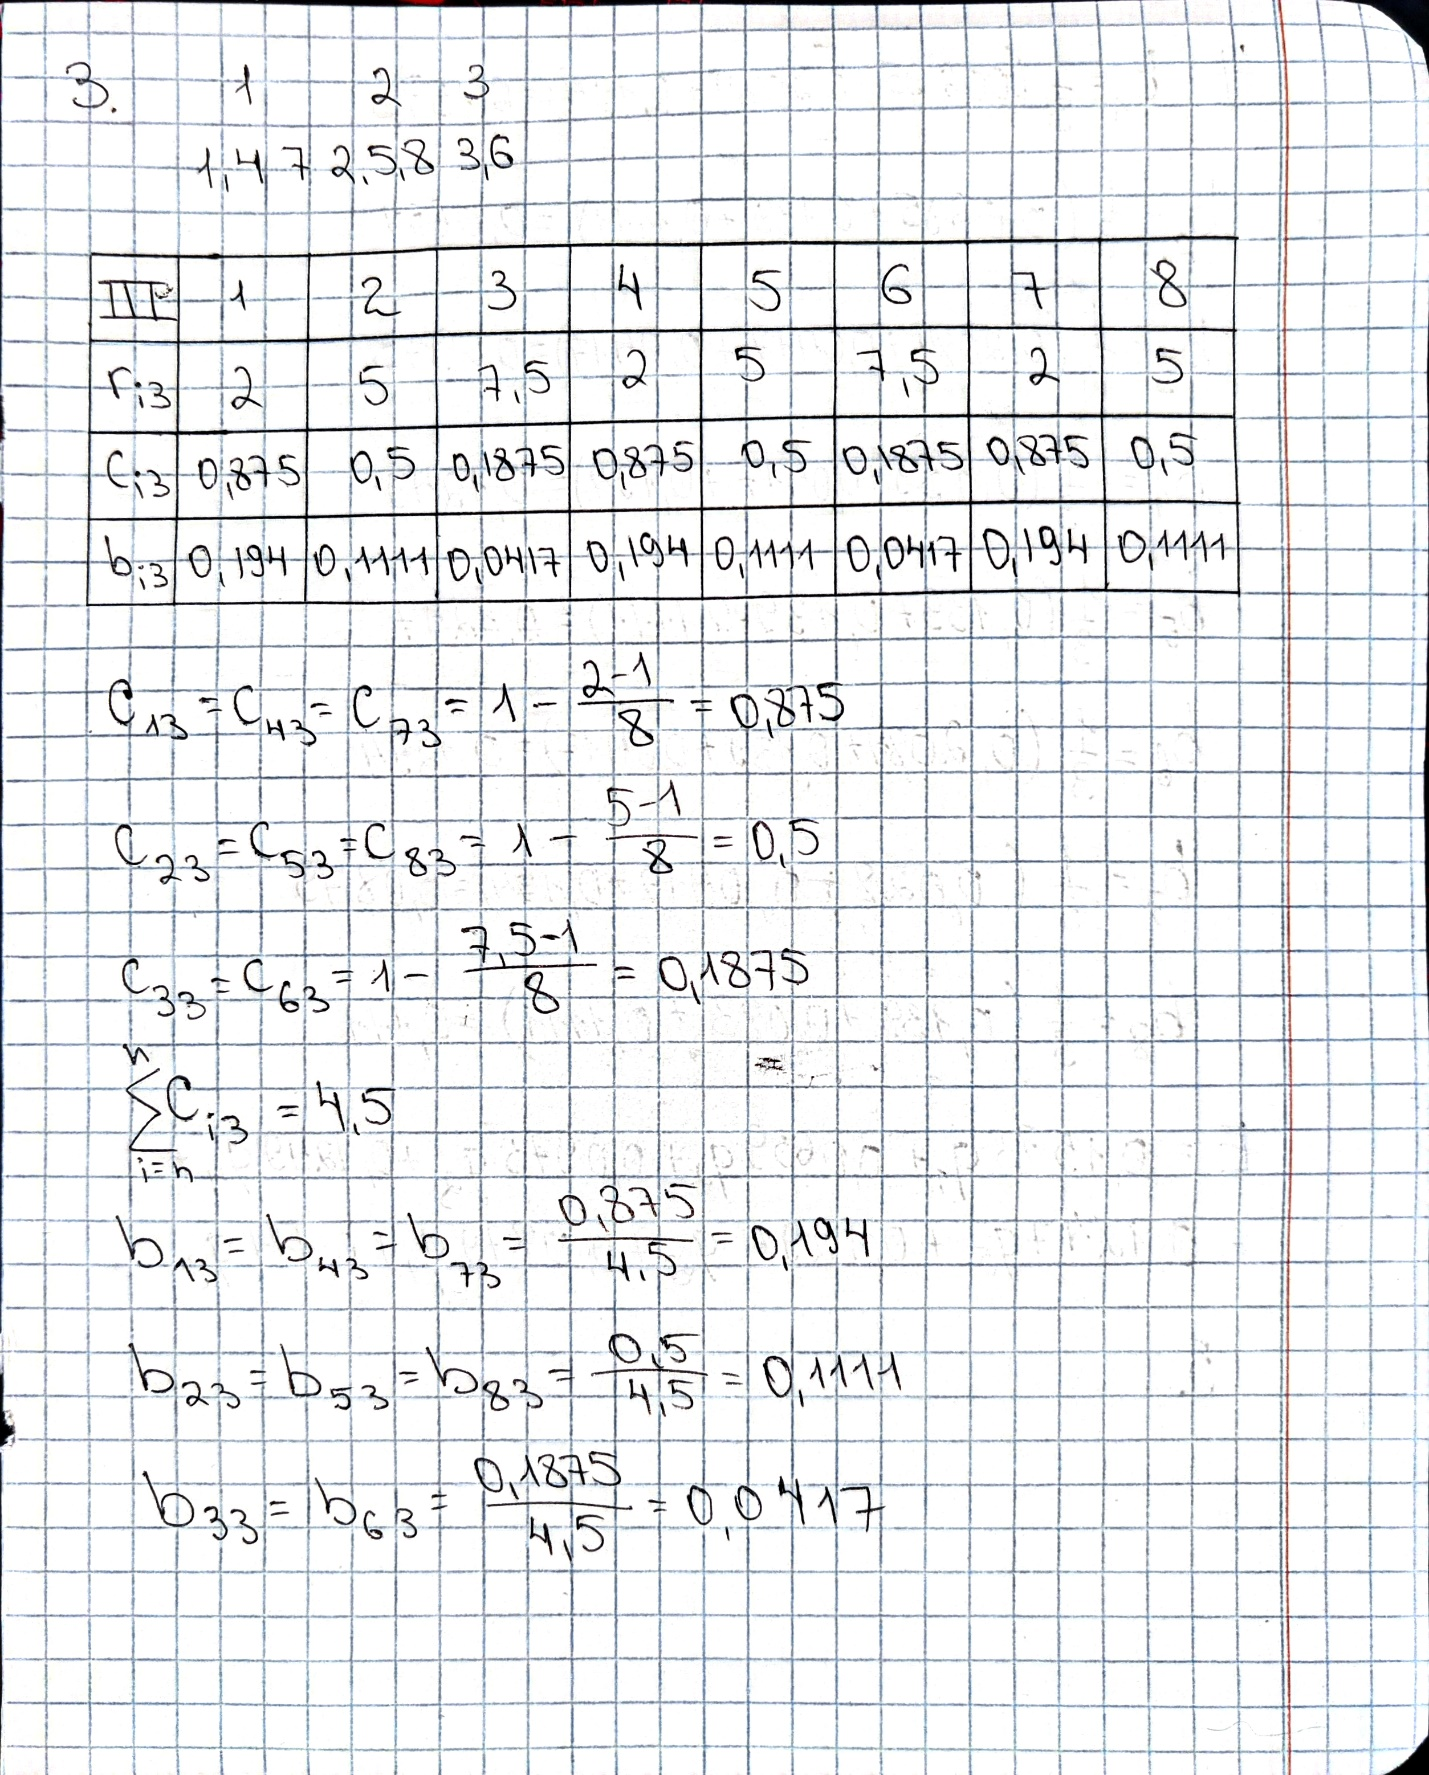 3. 1 2 3
1,4 7 2,5,8 3,6
III 1 2 3 4 5 6 7 8
ri3 2 5 7,5 2 5 7,5 2 5
Ci3 0,875 0,5 0,1875 0,875 0,5 0,1875 0,875 0,5
bi3 0,194 0,1111 0,0417 0,194 0,1111 0,0417 0,194 0,1111
C13 = C43 = C73 = 1 - (2-1)/8 = 0,875
C23 = C53 = C83 = 1 - (5-1)/8 = 0,5
C33 = C63 = 1 - (7,5-1)/8 = 0,1875
n
∑ Ci3 = 4,5
i=n
b13 = b43 = b73 = 0,875/4,5 = 0,194
b23 = b53 = b83 = 0,5/4,5 = 0,1111
b33 = b63 = 0,1875/4,5 = 0,0417